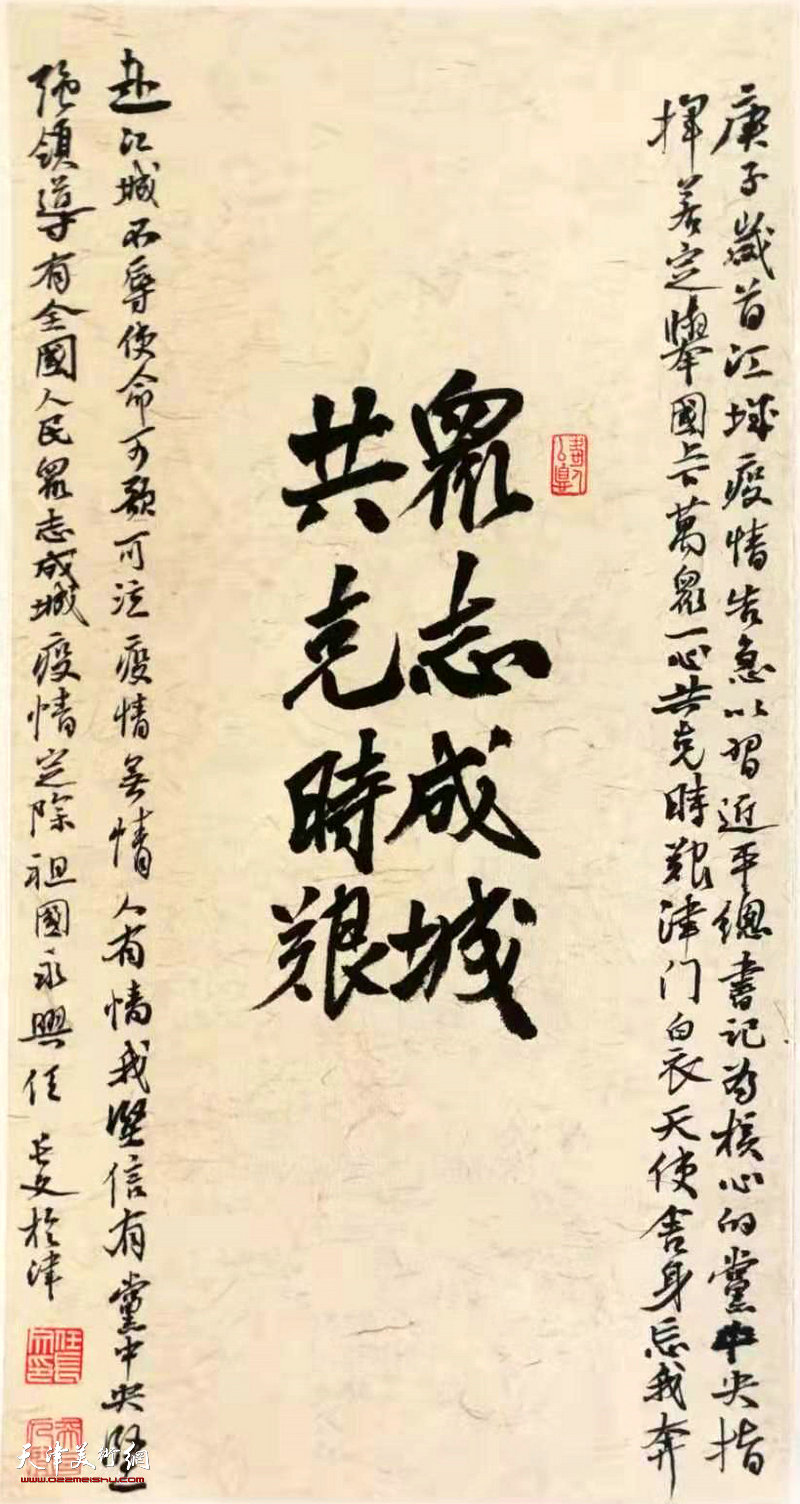 庚子歲首江城疫情告急以習近平總書記為核心的黨中央指
揮若定舉國上下萬眾一心共克時艱津门白衣天使舍身忘我奔
眾志成城
共克時艱
赴江城不辱使命可歌可泣疫情無情人有情我堅信有黨中央堅
强領導有全國人民眾志成城疫情定除祖國永興任長文於津
天津美術網
www.022meishu.com